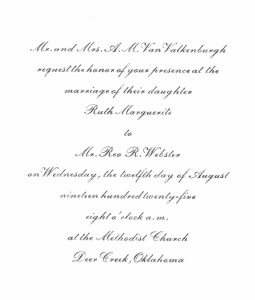 Mr. and Mrs. A. M. Van Valkenburgh
request the honor of your presence at the
marriage of their daughter
Ruth Marguerite
to
Mr. Reo R. Webster
on Wednesday, the twelfth day of August
nineteen hundred twenty-five
eight o'clock a.m.
at the Methodist Church
Deer Creek, Oklahoma